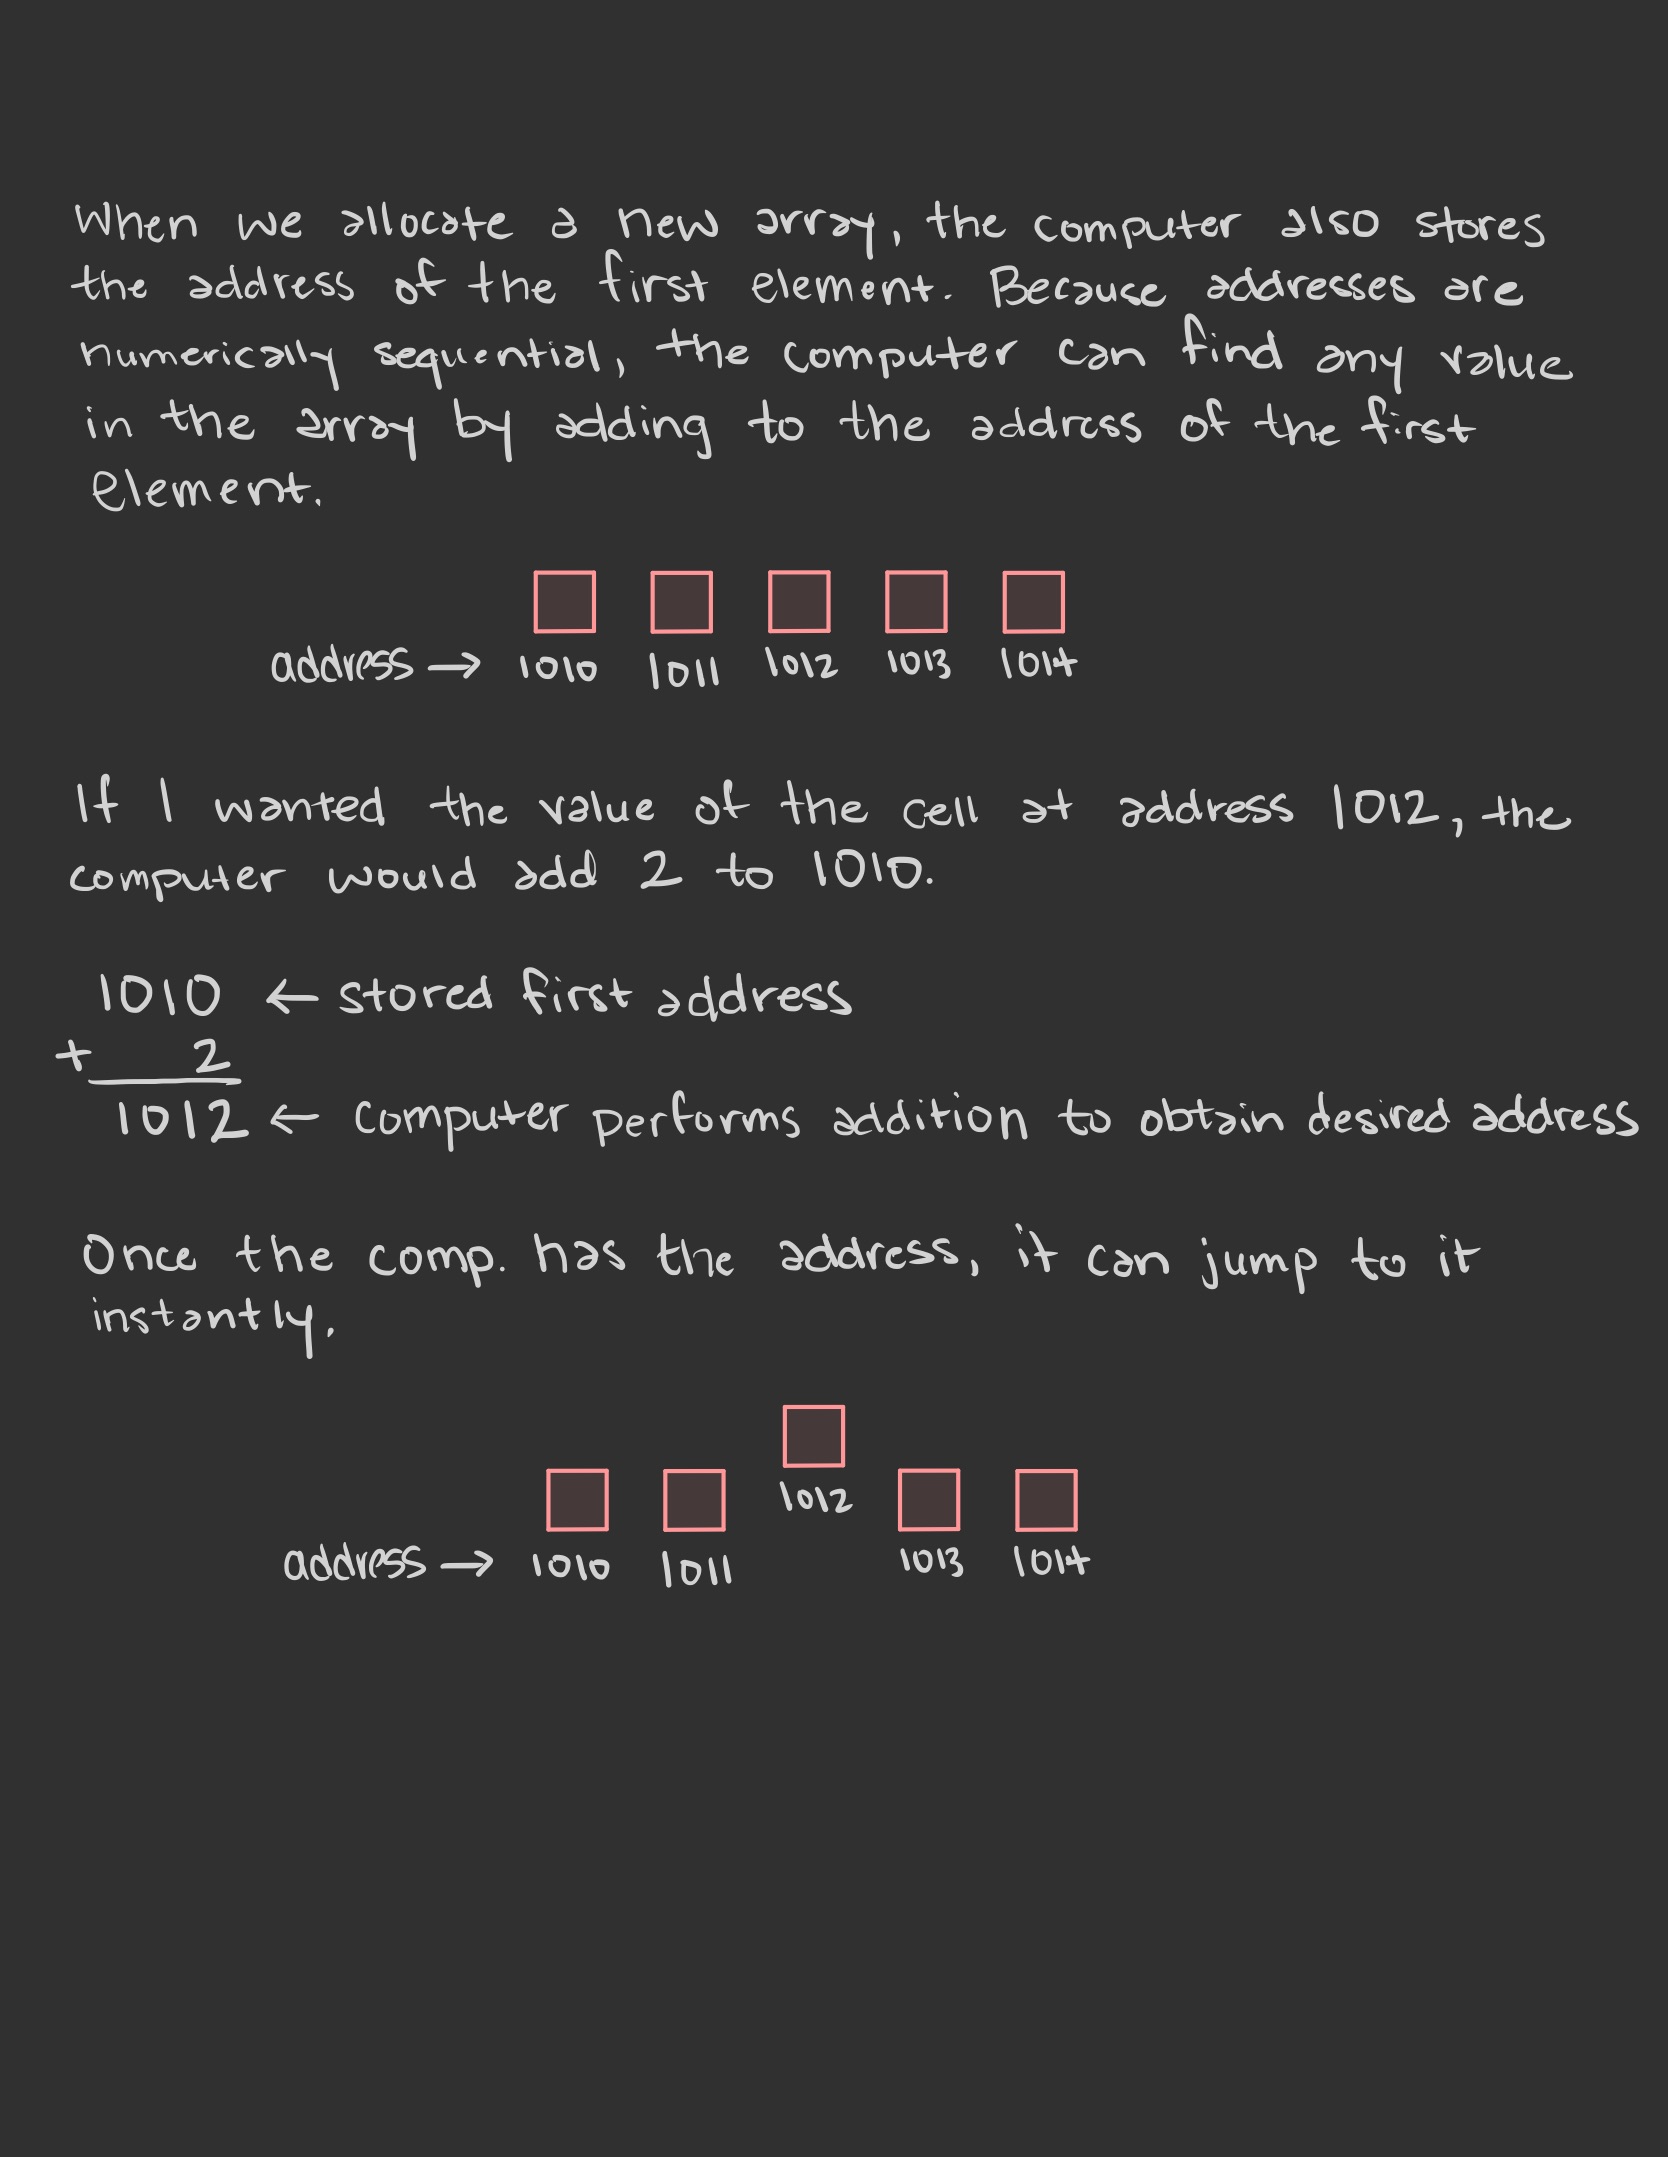 When we allocate a new array, the computer also stores
the address of the first element. Because addresses are
numerically sequential, the computer can find any value
in the array by adding to the address of the first
element.
address → 1010 1011 1012 1013 1014
If I wanted the value of the cell at address 1012, the
computer would add 2 to 1010.
1010 ← stored first address
+ 2
1012 ← computer performs addition to obtain desired address
Once the comp. has the address, it can jump to it
instantly.
1012
address → 1010 1011 1013 1014